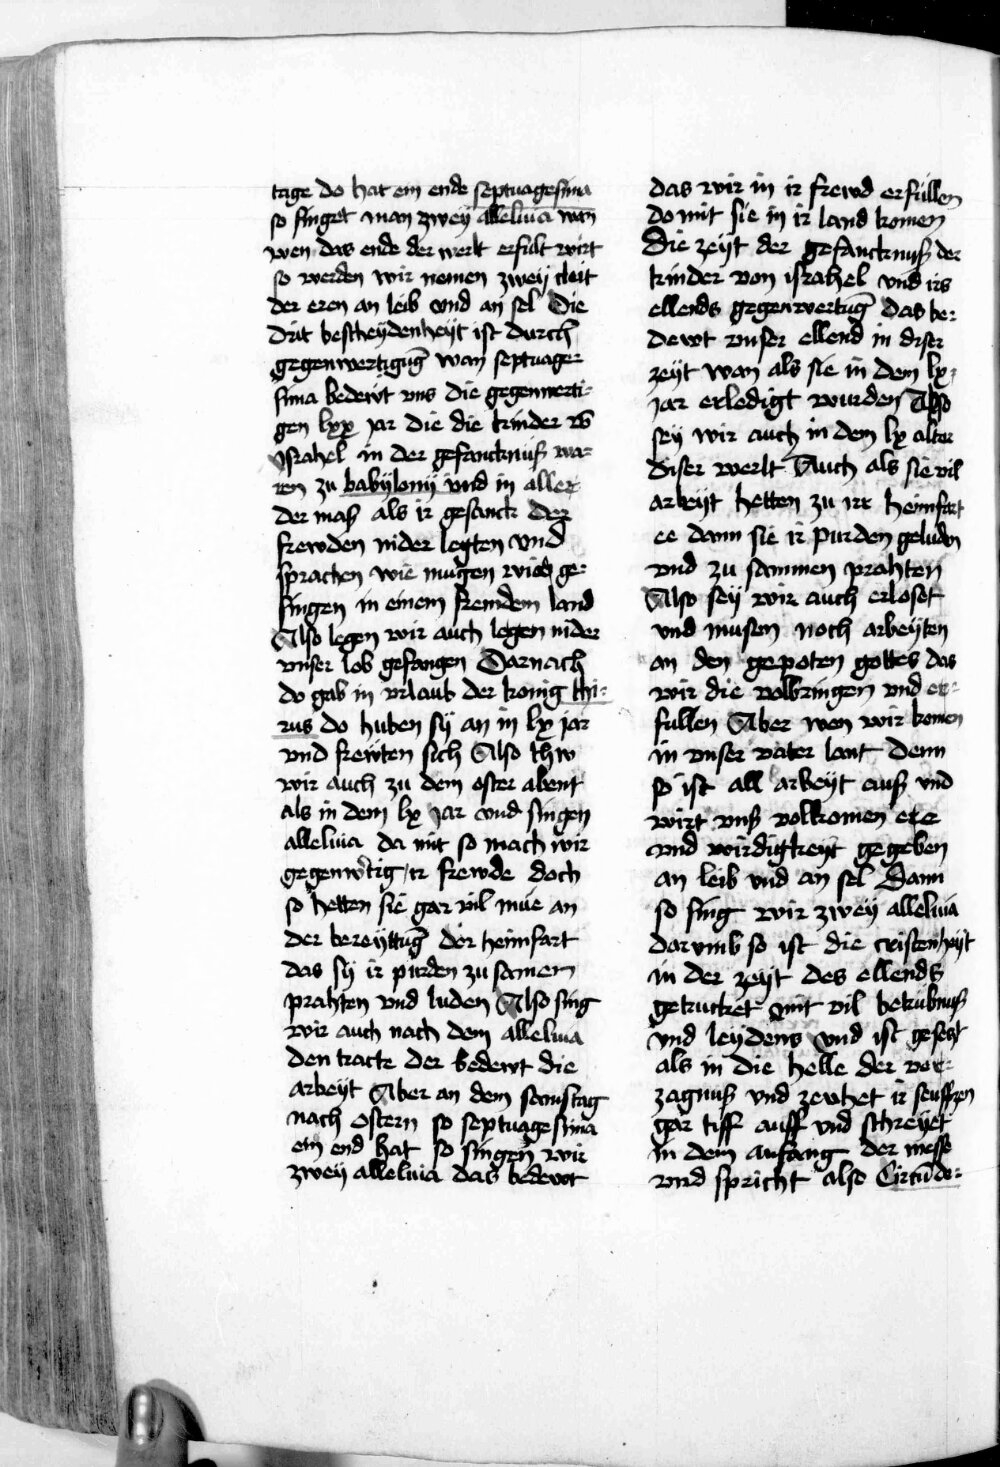 tage do hat ein ende septuagesima
so singet man zwey alleluia wan
wen das ende der werlt erfult wirt
so werden wir nemen zwey cleit
der eren an leib vnd an sel Die
drit bescheydenheyt ist durch
gegenwertigūg wan septuage-
sima bedewt vns die gegenwerti-
gen lxx jar die die kinder vō
ysrahel in der gefancknuß wa-
ren zu babylony vnd in aller
der maß als ir gesanck der
frewden nider legten vnd
sprachen wie mugen wir ge-
singen in einem fremdem land
Also legen wir auch legen nider
vnser lob gesangen Darnach
do gab in vrlaub der konig thi-
rus do huben sy an in lx jar
vnd frewten sich Also thw
wir auch zu dem oster abent
als in dem lx jar vnd singen
alleluia da mit so mach wir
gegenwertig ir frewde doch
so hetten sie gar vil mue an
der bereyttūg der heimfart
das sy ir purden zu samen
prahten vnd luden Also sing
wir auch nach dem alleluia
den tracte der bedewt die
arbeyt Aber an dem samstag
nach ostern so septuagesima
ein end hat so singen wir
zwey alleluia das bedewt
das wir in ir frewd erfullen
do mit sie in ir land komen
Die zeyt der gefancknuß der
kinder von israhel vnd irs
ellends gegenwertūg das be-
dewt vnser ellend in diser
zeyt wan als sie in dem lx
jar erledigt wurden Also
sey wir auch in dem lx alter
diser werlt Auch als sie vil
arbeyt hetten zu irr heimfart
ee dann sie ir purden geluden
vnd zu sammen prahten
Also sey wir auch erloset
vnd musen noch arbeyten
an den gepoten gottes das
wir die volbringen vnd er-
fullen Aber wen wir komen
in vnser vater lant denn
so ist all arbeyt auß vnd
wirt vnß volkomen eer
vnd wirdigkeyt gegeben
an leib vnd an sel Dann
so sing wir zwey alleluia
dar vmb so ist die cristenheyt
in der zeyt des ellends
getrucket mit vil betrubnuß
vnd leydens vnd ist gesetzt
als in die helle der ver-
zagnuß vnd zewhet ir seufftzen
gar tiff auff vnd schreyet
in dem anfang der messe
vnd spricht also Circūde-